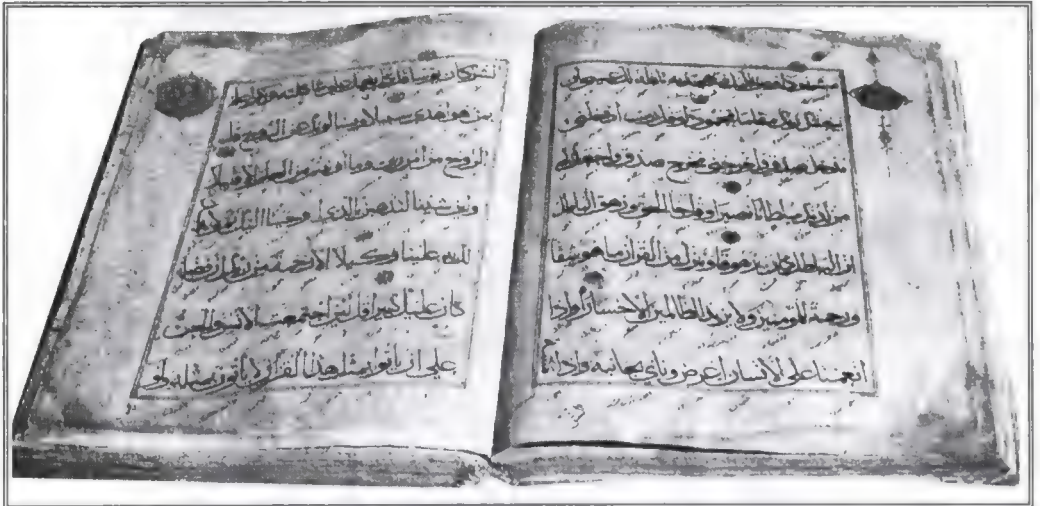 مشهودا ومن الليل فتهجد به نافلة لك عسى ان
يبعثك ربك مقاما محمودا وقل رب ادخلني
مدخل صدق واخرجني مخرج صدق واجعل لي
من لدنك سلطانا نصيرا وقل جا الحق وزهق الباطل
ان الباطل كان زهوقا وننزل من القران ما هو شفا
ورحمة للمومنين ولا يزيد الظالمين الا خسارا واذا
انعمنا على الانسان اعرض وناي بجانبه واذا
الشر كان يوسا قل كل يعمل على شاكلته فربكم اعلم
بمن هو اهدى سبيلا ويسالونك عن الروح قل
الروح من امر ربي وما اوتيتم من العلم الا قليلا
ولئن شئنا لنذهبن بالذي اوحينا اليك ثم لا تجد
لك به علينا وكيلا الا رحمة من ربك ان فضله
كان عليك كبيرا قل لئن اجتمعت الانس والجن
على ان ياتوا بمثل هذا القران لا ياتون بمثله ولو